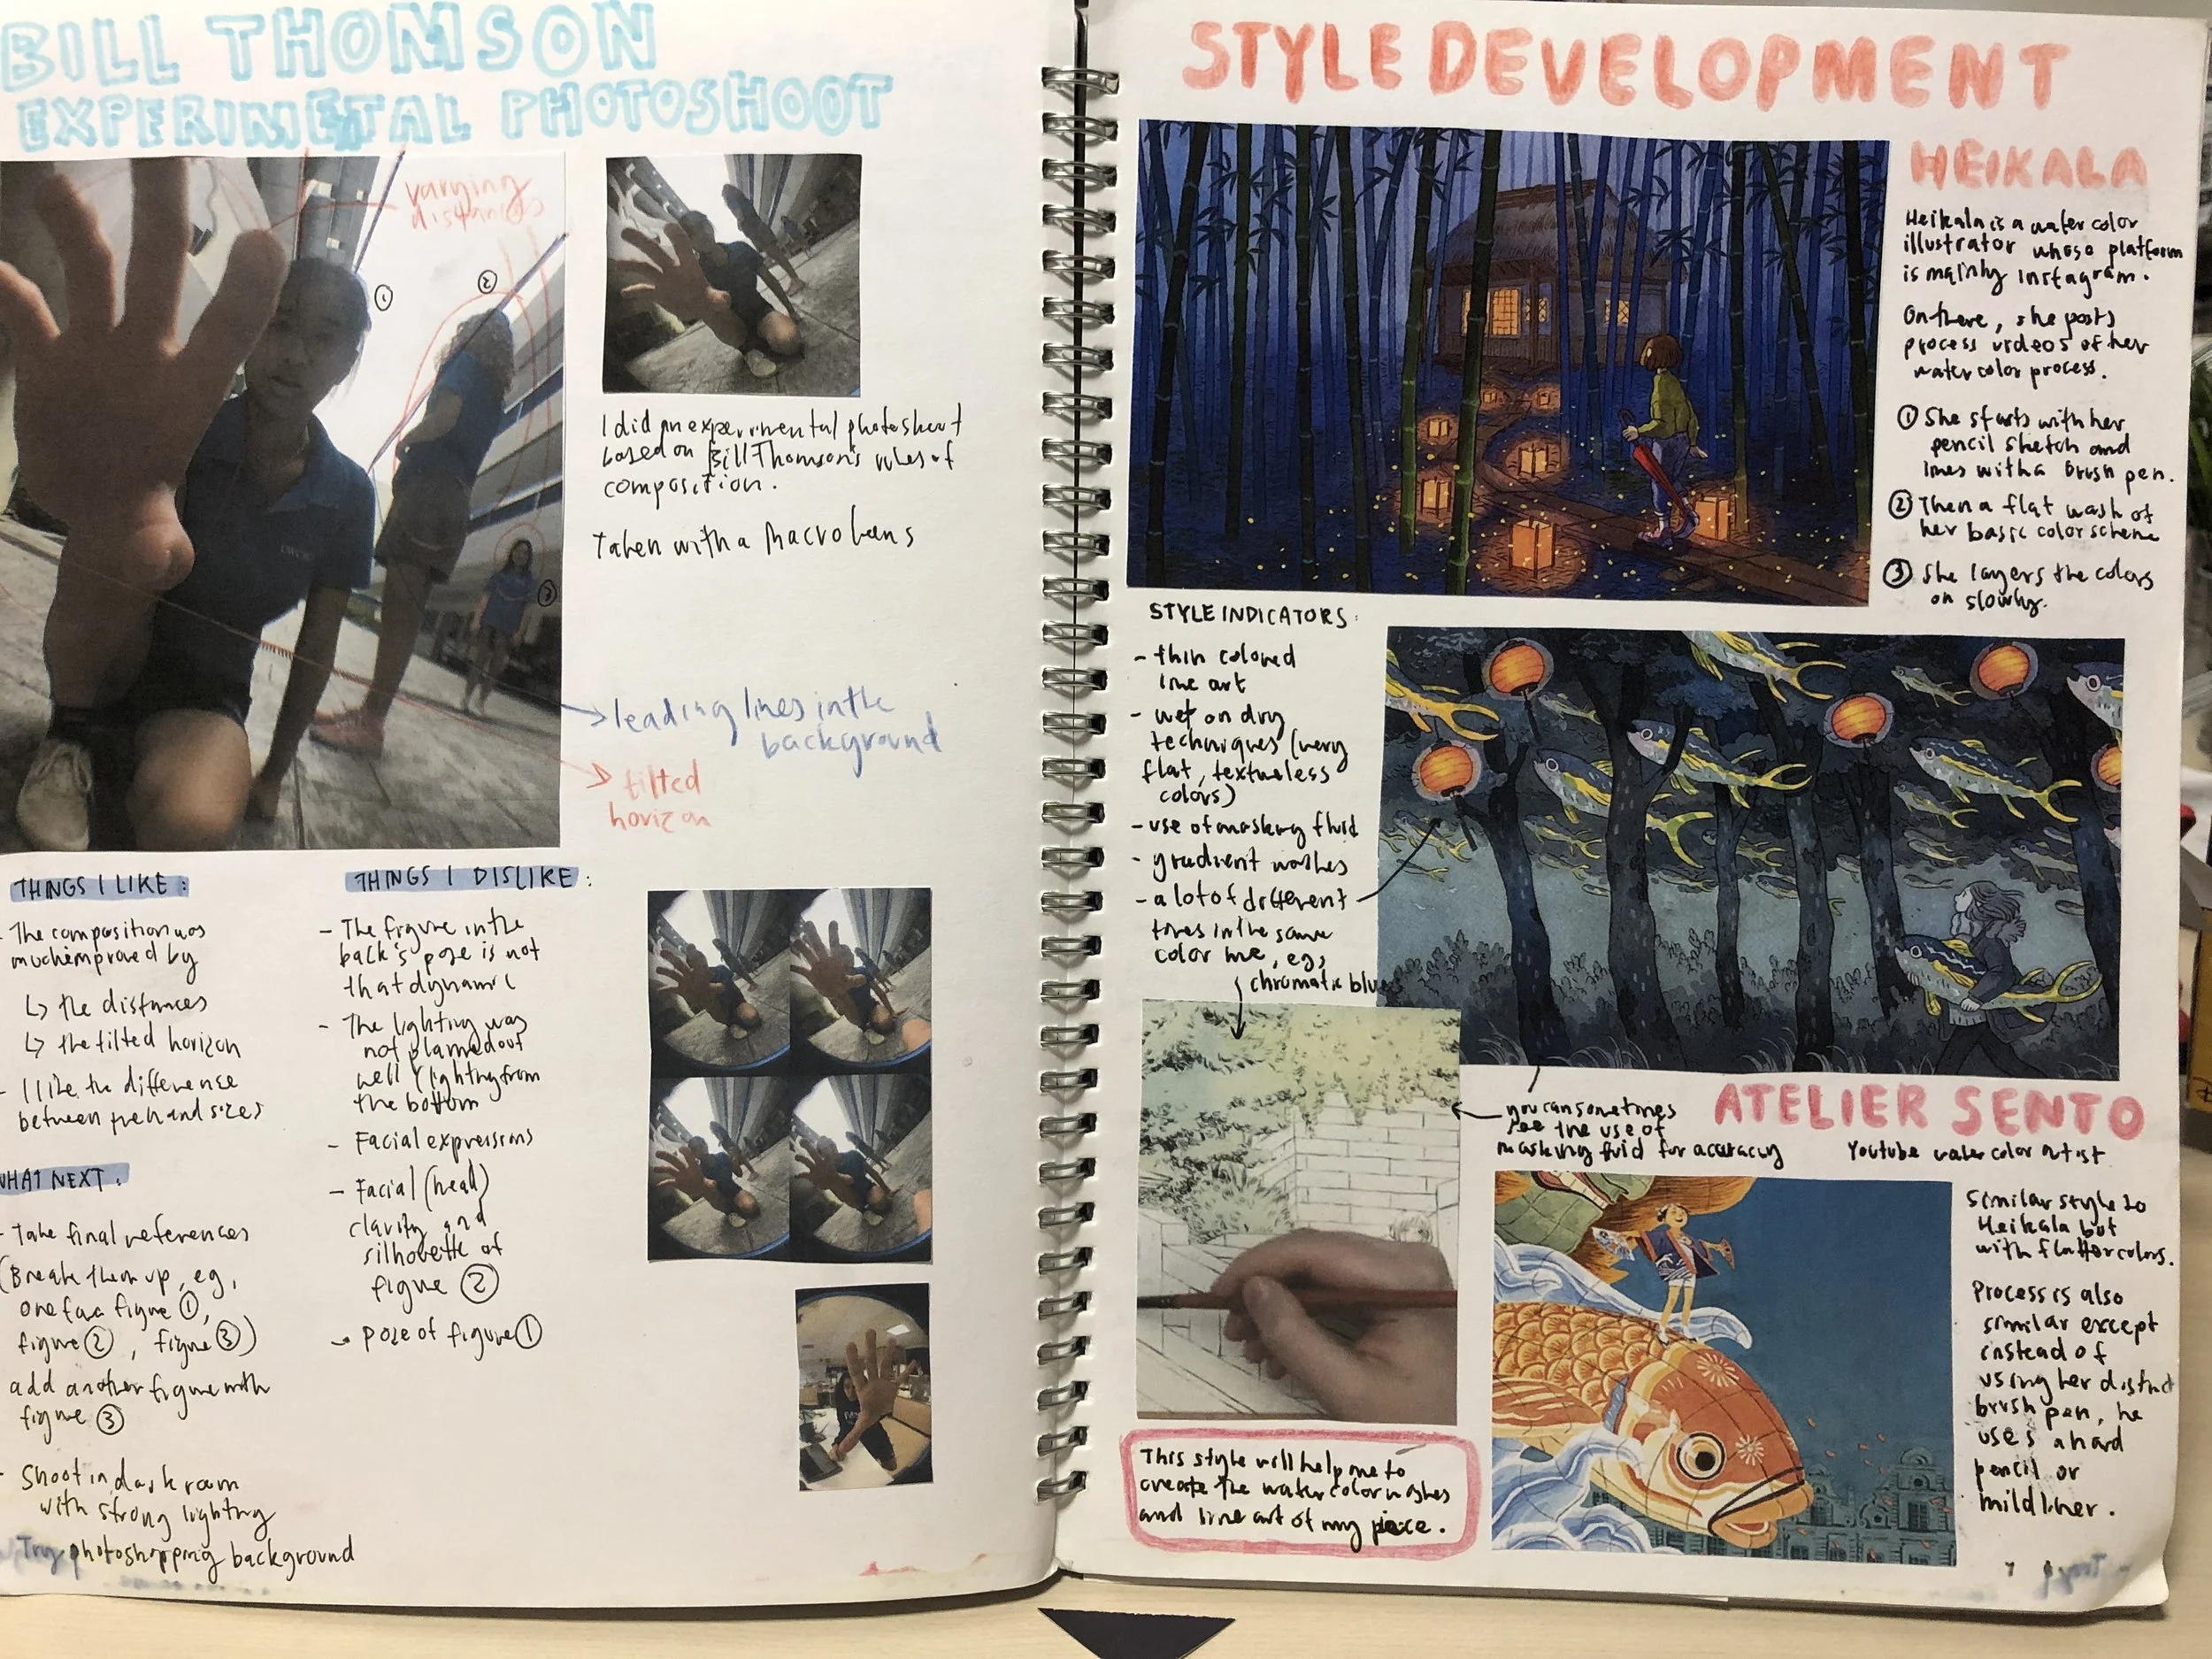 BILL THOMSON
EXPERIMETAL PHOTOSHOOT
varying
distances
①
②
③
I did an experimental photoshoot
based on Bill Thomson's rules of
composition.
Taken with a Macro Lens
leading lines in the
background
tilted
horizon
THINGS I LIKE:
- The composition was
much improved by
↳ the distances
↳ the tilted horizon
- I like the difference
between
THINGS I DISLIKE:
- The figure in the
back's pose is not
that dynamic
- The lighting was
not planned out
well (lighting from
the bottom
- Facial expressions
- Facial (head)
clarity and
silhouette of
figure ②
- Pose of figure ①
WHAT NEXT:
- Take final references
(Break them up, eg,
one for figure ①,
figure ②, figure ③)
add another figure with
figure ③
- Shoot in dark room
with strong lighting
Try photoshopping background
STYLE DEVELOPMENT
HEIKALA
Heikala is a water color
illustrator whose platform
is mainly instagram.
On there, she posts
process videos of her
water color process.
① She starts with her
pencil sketch and
lines with a brush pen.
② Then a flat wash of
her basic color scheme
③ She layers the colors
on slowly.
STYLE INDICATORS:
- thin colored
line art
- wet on dry
techniques (very
flat, textureless
colors)
- use of masking fluid
- gradient washes
- a lot of different
tones in the same
color hue, eg,
chromatic blues
you can sometimes
see the use of
masking fluid for accuracy
ATELIER SENTO
Youtube water color artist
Similar style to
Heikala but
with flatter colors.
Process is also
similar except
instead of
using her distinct
brush pen, he
uses a hard
pencil or
mildliner.
This style will help me to
create the water color washes
and line art of my piece.